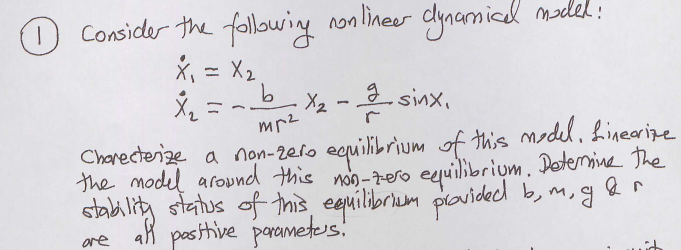 ① Consider the following nonlinear dynamical model:
ẋ₁ = x₂
ẋ₂ = - b/mr² x₂ - g/r sinx₁
Charecterize a non-zero equilibrium of this model. Linearize
the model around this non-zero equilibrium. Determine the
stability status of this equilibrium provided b, m, g & r
are all positive parameters.